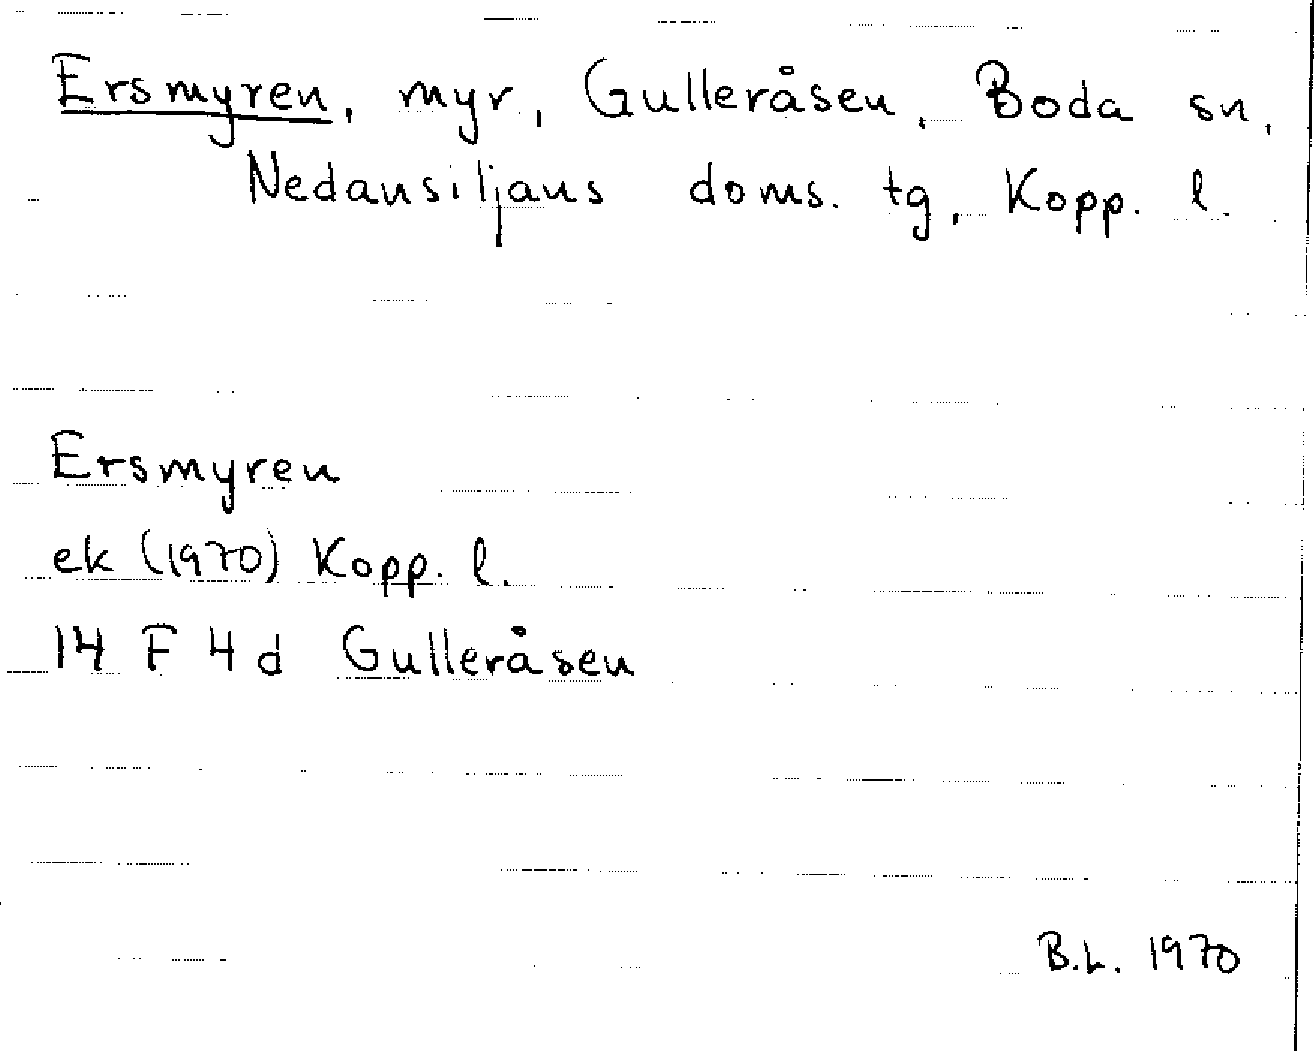 Ersmyren, myr, Gulleråsen, Boda sn,
Nedansiljans doms. tg, Kopp. l.
Ersmyren
ek (1970) Kopp. l.
14 F 4 d Gulleråsen
B.L. 1970